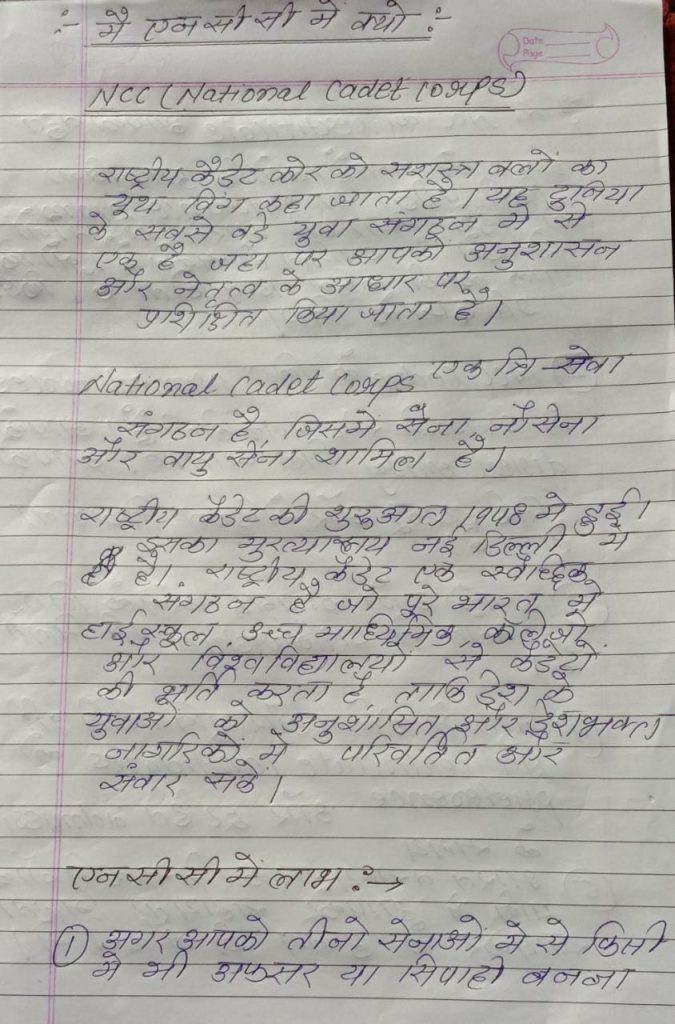 :- मै एनसीसी में क्यो :-
Date
Page
NCC (National Cadet Corps)
राष्ट्रीय कैडेट कोर को सशस्त्र बलों का
यूथ विंग कहा जाता है। यह दुनिया
के सबसे बड़े युवा संगठन मे से
एक है जहा पर आपको अनुशासन
और नेतृत्व के आधार पर
प्रशिक्षित किया जाता है।
National Cadet Corps एक त्रि-सेवा
संगठन है, जिसमें सेना, नौसेना
और वायु सेना शामिल है।
राष्ट्रीय कैडेट की शुरुआत 1948 मे हुई।
इसका मुख्यालय नई दिल्ली मे
है। राष्ट्रीय कैडेट एक स्वैच्छिक
संगठन है जो पूरे भारत मे
हाई स्कूल, उच्च माध्यमिक, कॉलेजो
और विश्वविद्यालयों से कैडेटो
की भर्ति करता है, ताकि देश के
युवाओ को अनुशासित और देशभक्त
नागरिकों मे परिवर्तित और
संवार सकें।
एनसीसी में लाभ :→
① अगर आपको तीनो सेनाओं मे से किसी
मे भी अफसर या सिपाही बनना